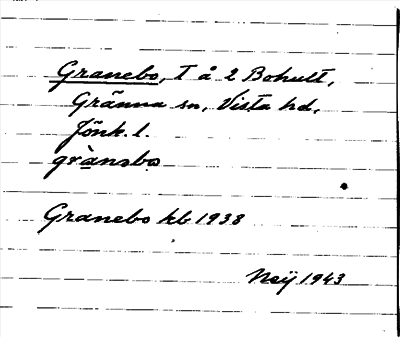 Granebo, T å 2 Bohult,
Gränna sn, Vista hd,
Jönk. l.
grànabo
Granebo kb 1938
1943